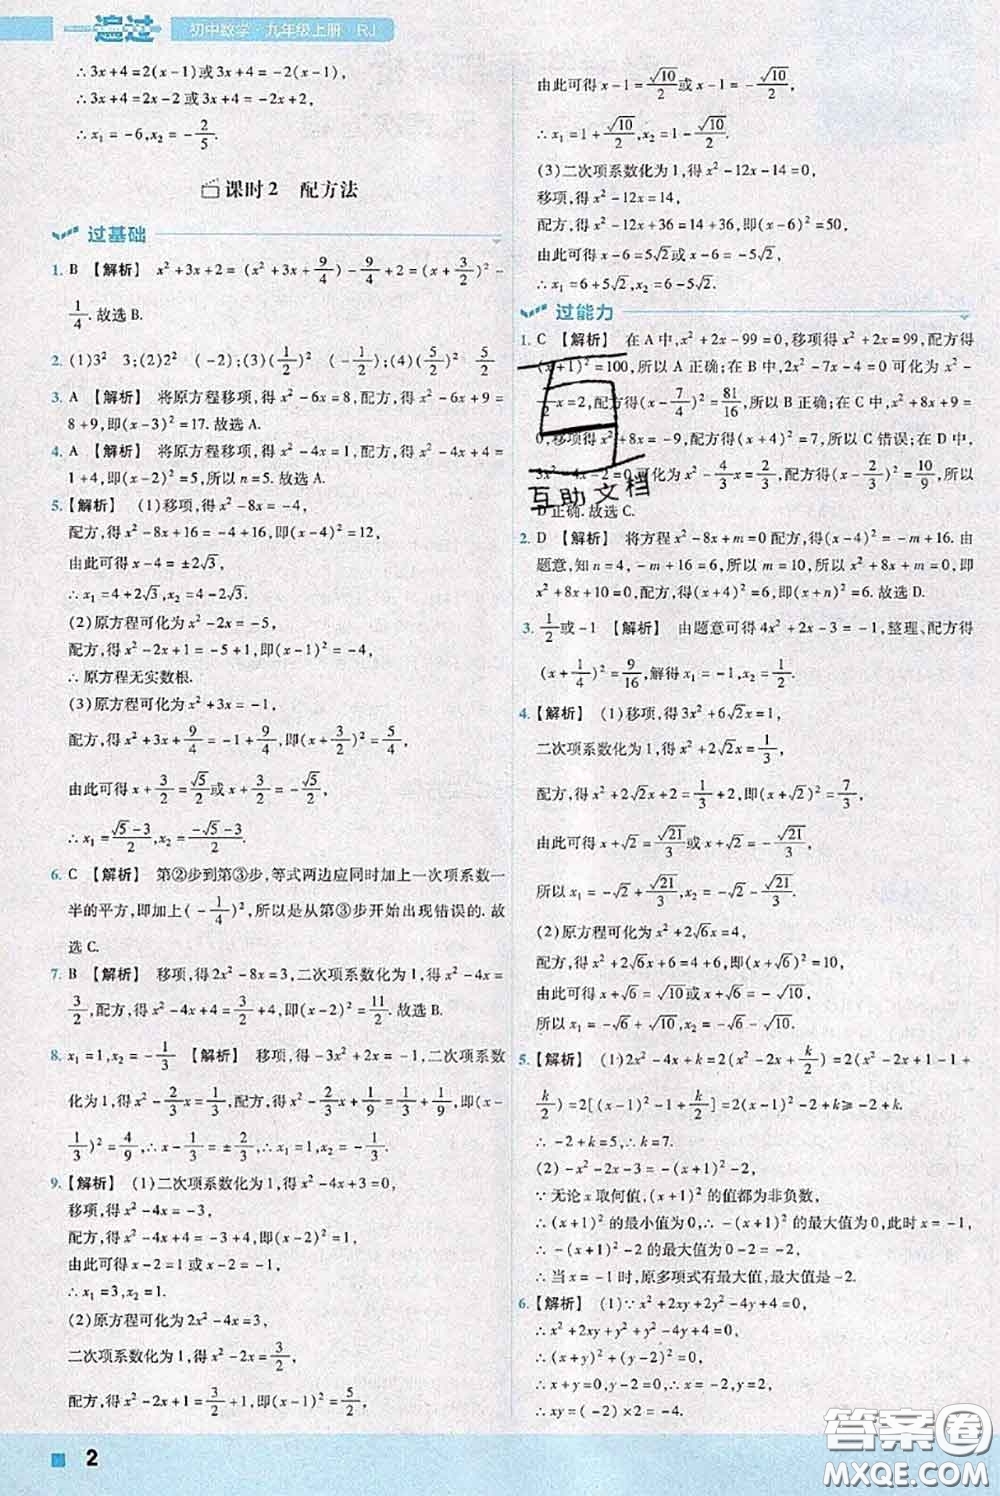 一遍过 初中数学·九年级上册 RJ
∴3x+4=2(x-1)或3x+4=-2(x-1),
∴3x+4=2x-2或3x+4=-2x+2,
∴x₁=-6,x₂=-2/5.
课时2 配方法
过基础
1. B 【解析】 x²+3x+2=(x²+3x+9/4)-9/4+2=(x+3/2)²-
1/4.故选B.
2. (1)3² 3;(2)2² (-2);(3)(1/2)² (-1/2);(4)(5/2)² 5/2
3. A 【解析】 将原方程移项,得x²-6x=8,配方,得x²-6x+9=
8+9,即(x-3)²=17.故选A.
4. A 【解析】 将原方程移项,得x²-4x=1,配方,得x²-4x+4=
1+4,即(x-2)²=5,所以n=5.故选A.
5. 【解析】 (1)移项,得x²-8x=-4,
配方,得x²-8x+16=-4+16,即(x-4)²=12,
由此可得x-4=±2√3,
∴x₁=4+2√3,x₂=4-2√3.
(2)原方程可化为x²-2x=-5,
配方,得x²-2x+1=-5+1,即(x-1)²=-4,
∴原方程无实数根.
(3)原方程可化为x²+3x=-1,
配方,得x²+3x+9/4=-1+9/4,即(x+3/2)²=5/4,
由此可得x+3/2=√5/2或x+3/2=-√5/2,
∴x₁=(√5-3)/2,x₂=(-√5-3)/2.
6. C 【解析】 第②步到第③步,等式两边应同时加上一次项系数一
半的平方,即加上(-1/4)²,所以是从第③步开始出现错误的.故
选C.
7. B 【解析】 移项,得2x²-8x=3,二次项系数化为1,得x²-4x=
3/2,配方,得x²-4x+4=3/2+4,即(x-2)²=11/2.故选B.
8. x₁=1,x₂=-1/3 【解析】 移项,得-3x²+2x=-1,二次项系数
化为1,得x²-2/3x=1/3,配方,得x²-2/3x+1/9=1/3+1/9,即(x-
1/3)²=4/9,∴x-1/3=±2/3,∴x₁=1,x₂=-1/3.
9. 【解析】 (1)二次项系数化为1,得x²-4x+3=0,
移项,得x²-4x=-3,
配方,得x²-4x+4=-3+4,即(x-2)²=1,
由此可得x-2=1或x-2=-1,
∴x₁=3,x₂=1.
(2)原方程可化为2x²-4x=3,
二次项系数化为1,得x²-2x=3/2,
配方,得x²-2x+1=3/2+1,即(x-1)²=5/2,
由此可得x-1=√10/2或x-1=-√10/2,
∴x₁=1+√10/2,x₂=1-√10/2.
(3)二次项系数化为1,得x²-12x-14=0,
移项,得x²-12x=14,
配方,得x²-12x+36=14+36,即(x-6)²=50,
由此可得x-6=5√2或x-6=-5√2,
∴x₁=6+5√2,x₂=6-5√2.
过能力
1. C 【解析】 在A中,x²+2x-99=0,移项得x²+2x=99,配方得
(x+1)²=100,所以A正确;在B中,2x²-7x-4=0可化为x²-
7/2x=2,配方得(x-7/4)²=81/16,所以B正确;在C中,x²+8x+9=
0,移项得x²+8x=-9,配方得(x+4)²=7,所以C错误;在D中,
3x²-4x-2=0可化为x²-4/3x=2/3,配方得(x-2/3)²=10/9,所以
D正确.故选C.
互助文档
2. D 【解析】 将方程x²-8x+m=0配方,得(x-4)²=-m+16.由
题意,知n=4,-m+16=6,所以m=10,所以x²+8x+m=0,即
x²+8x+10=0,配方,得(x+4)²=6,即(x+n)²=6.故选D.
3. 1/2或-1 【解析】 由题意可得4x²+2x-3=-1,整理、配方得
(x+1/4)²=9/16,解得x₁=-1,x₂=1/2.
4. 【解析】 (1)移项,得3x²+6√2x=1,
二次项系数化为1,得x²+2√2x=1/3,
配方,得x²+2√2x+2=1/3+2,即(x+√2)²=7/3,
由此可得x+√2=√21/3或x+√2=-√21/3,
所以x₁=-√2+√21/3,x₂=-√2-√21/3.
(2)原方程可化为x²+2√6x=4,
配方,得x²+2√6x+6=4+6,即(x+√6)²=10,
由此可得x+√6=√10或x+√6=-√10,
所以x₁=-√6+√10,x₂=-√6-√10.
5. 【解析】 (1)2x²-4x+k=2(x²-2x+k/2)=2(x²-2x+1-1+
k/2)=2[(x-1)²-1+k/2]=2(x-1)²-2+k≥-2+k.
∴-2+k=5,∴k=7.
(2)-(x+1)²-2,
∵无论x取何值,(x+1)²的值都为非负数,
∴(x+1)²的最小值为0,∴-(x+1)²的最大值为0,此时x=-1,
∴-(x+1)²-2的最大值为0-2=-2,
∴当x=-1时,原多项式有最大值,最大值是-2.
6. 【解析】 (1)∵x²+2xy+2y²-4y+4=0,
∴x²+2xy+y²+y²-4y+4=0,
∴(x+y)²+(y-2)²=0,
∴x+y=0,y-2=0,
∴x=-2,y=2,
∴xy=(-2)×2=-4.
2
答案圈
MXQE.COM